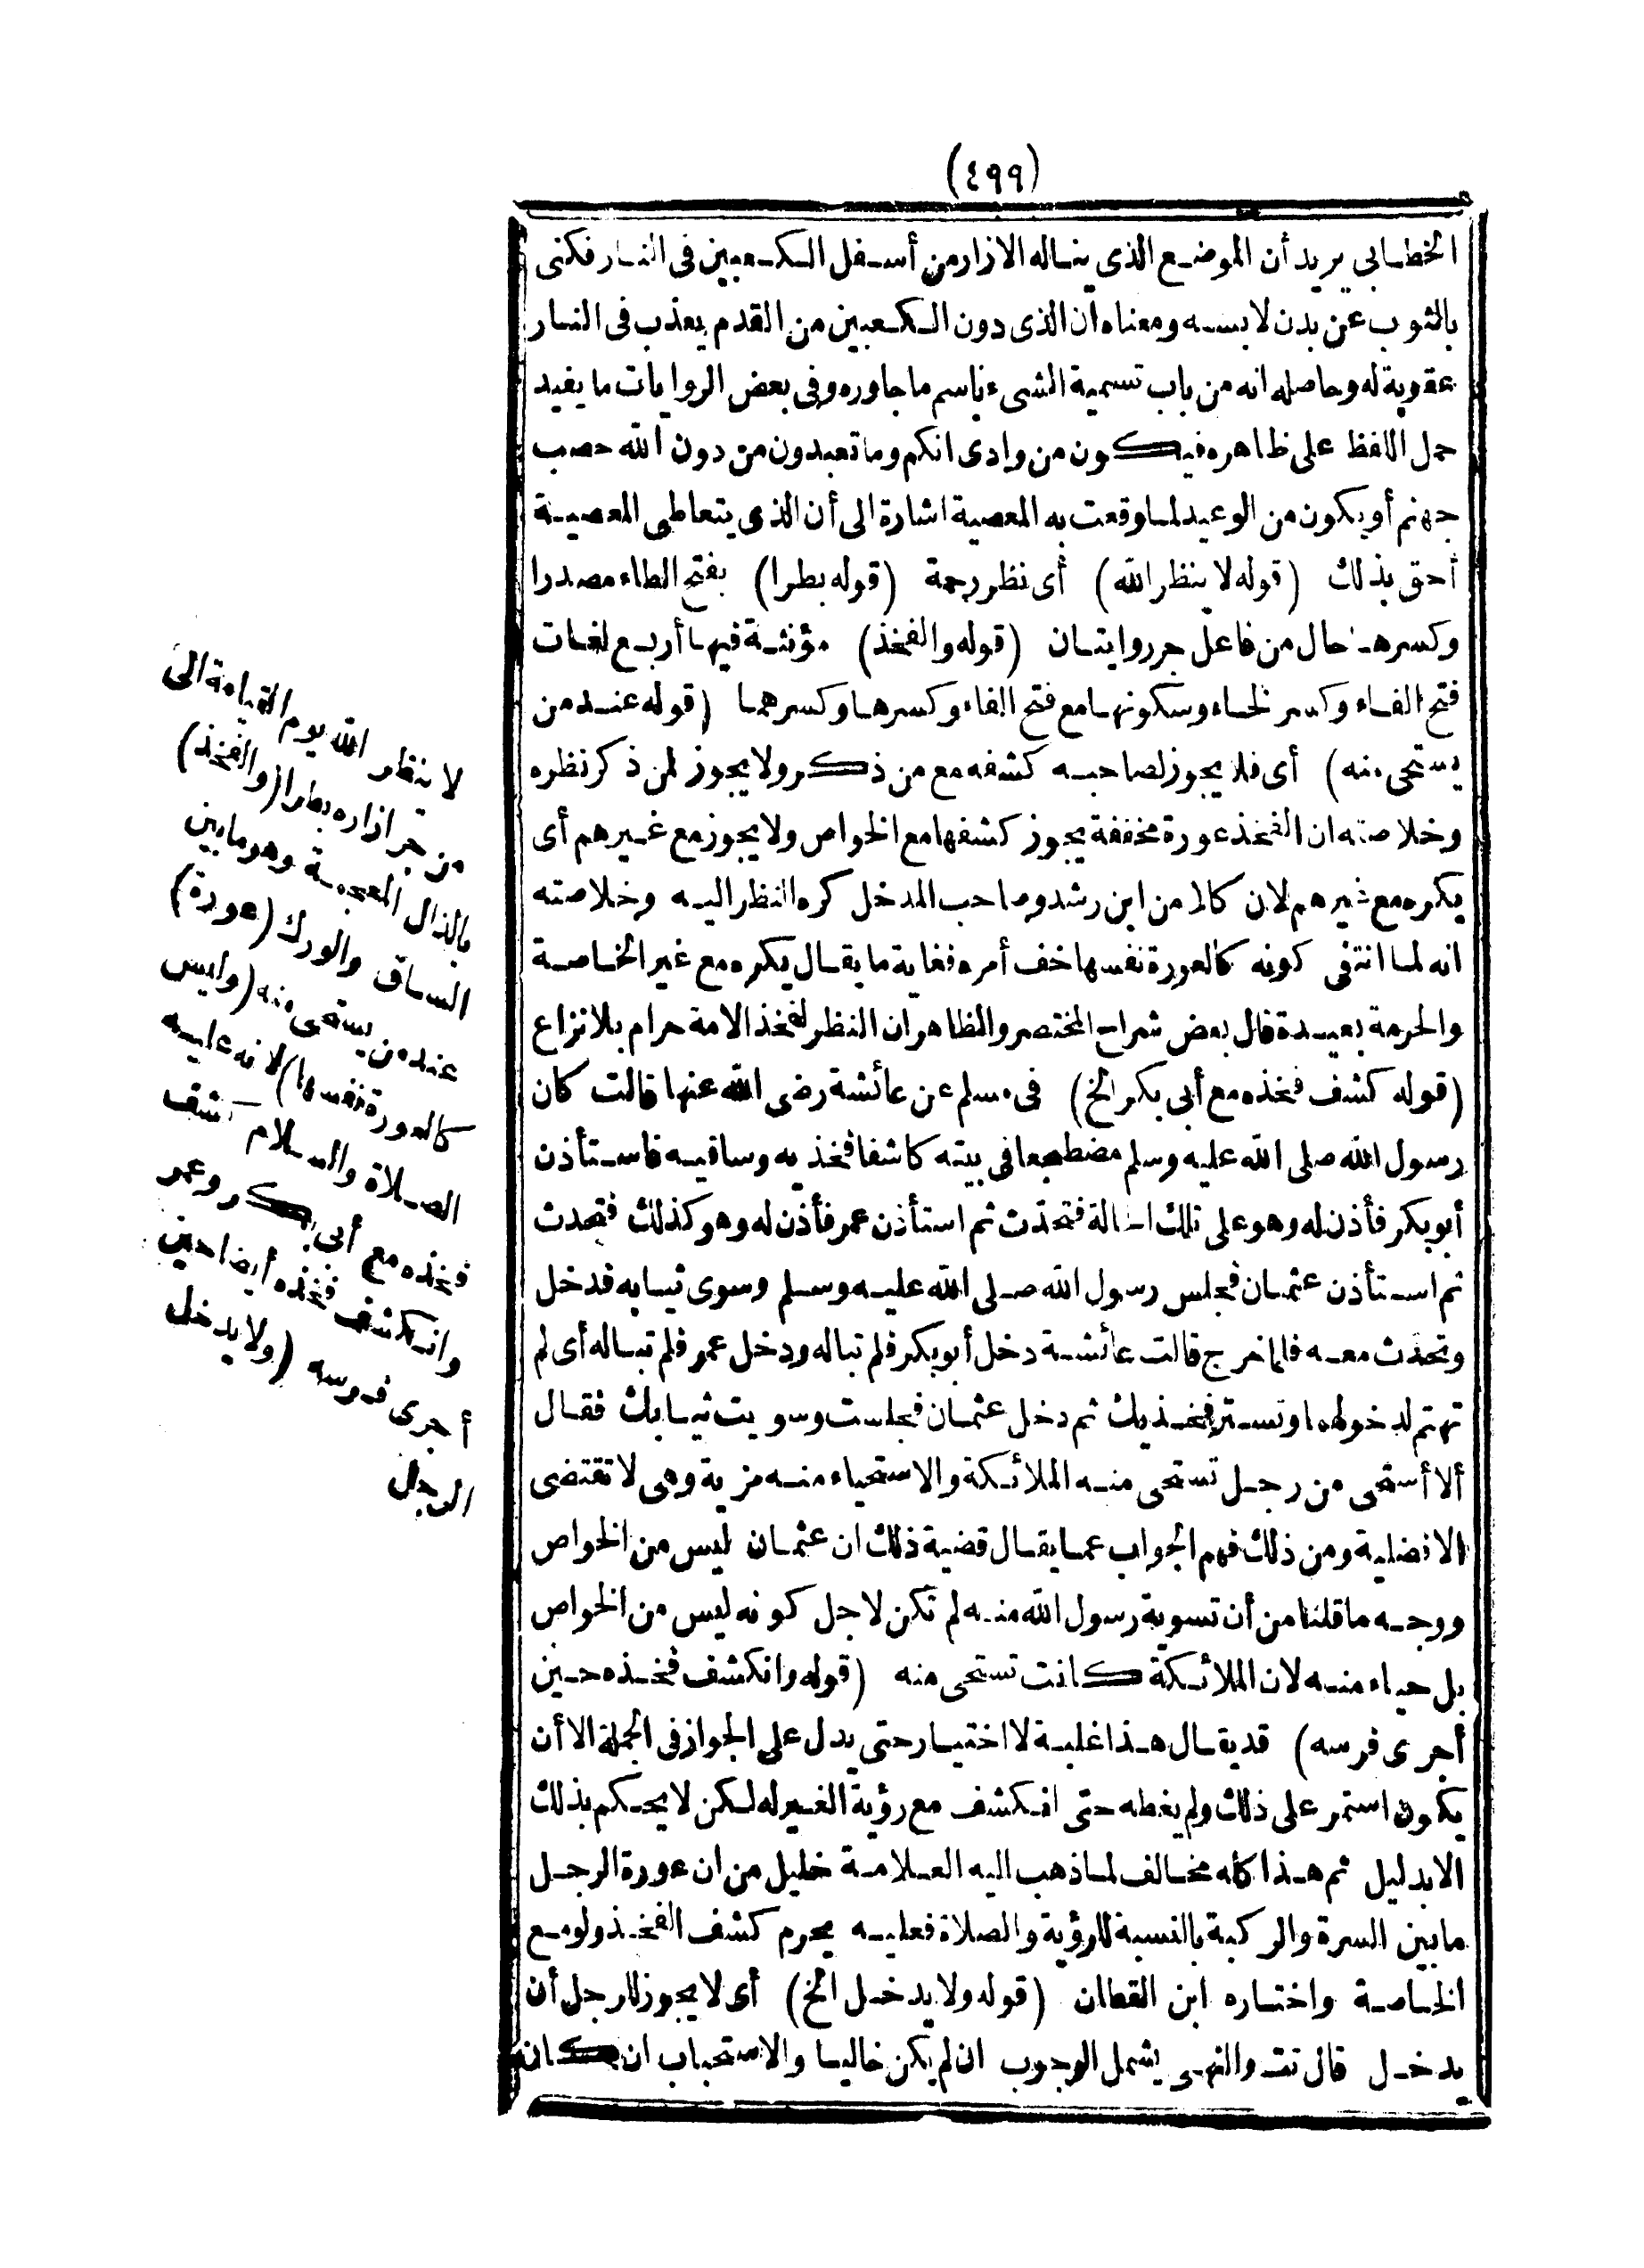 (٤٩٩)
الخطابي يريد أن الموضع الذي يناله الازار من أسفل الكعبين فى النار فكنى
بالثوب عن بدن لابسه ومعناه ان الذى دون الكعبين من القدم يعذب فى النار
عقوبة له وحاصله انه من باب تسمية الشىء باسم ما جاوره وفى بعض الروايات ما يفيد
حمل اللفظ على ظاهره فيكون من وادى انكم وما تعبدون من دون الله حصب
جهنم أو يكون من الوعيد لما وقعت به المعصية اشارة الى أن الذى يتعاطى المعصية
أحق بذلك (قوله لا ينظر الله) أى نظر رحمة (قوله بطرا) بفتح الطاء مصدرا
وكسرها حال من فاعل جر روايتان (قوله والفخذ) مؤنثة فيها أربع لغات
فتح الفاء وكسر الخاء وسكونها مع فتح الفاء وكسرها وكسرهما (قوله عند من
يستحى منه) أى فلا يجوز لصاحبه كشفه مع من ذكر ولا يجوز لمن ذكر نظره
وخلاصته ان الفخذ عورة مخففة يجوز كشفها مع الخواص ولا يجوز مع غيرهم أى
يكره مع غيرهم لان كلا من ابن رشد وصاحب المدخل كره النظر اليه وخلاصته
انه لما انتفى كونه كالعورة نفسها خف أمره فغاية ما يقال يكره مع غير الخاصة
والحرمة بعيدة قال بعض شراح المختصر والظاهر ان النظر لفخذ الامة حرام بلا نزاع
(قوله كشف فخذه مع أبى بكر الخ) فى مسلم عن عائشة رضى الله عنها قالت كان
رسول الله صلى الله عليه وسلم مضطجعا فى بيته كاشفا فخذيه وساقيه فاستأذن
أبو بكر فأذن له وهو على تلك الحالة فتحدث ثم استأذن عمر فأذن له وهو كذلك فتحدث
ثم استأذن عثمان فجلس رسول الله صلى الله عليه وسلم وسوى ثيابه فدخل
وتحدث معه فلما خرج قالت عائشة دخل أبو بكر فلم تباله ودخل عمر فلم تباله أى لم
تهتم لدخولهما وتستر فخذيك ثم دخل عثمان فجلست وسويت ثيابك فقال
ألا أستحى من رجل تستحى منه الملائكة والاستحياء منه مزية وهى لا تقتضى
الافضلية ومن ذلك فهم الجواب عما يقال قضية ذلك ان عثمان ليس من الخواص
ووجه ما قلنا من أن تسوية رسول الله منه لم تكن لاجل كونه ليس من الخواص
بل حياء منه لان الملائكة كانت تستحى منه (قوله وانكشف فخذه حين
أجرى فرسه) قد يقال هذا غلبة لا اختيار حتى يدل على الجواز فى الجملة الا أن
يكون استمر على ذلك ولم يغطه حتى انكشف مع رؤية الغير له لكن لا يحكم بذلك
الا بدليل ثم هذا كله مخالف لما ذهب اليه العلامة خليل من ان عورة الرجل
ما بين السرة والركبة بالنسبة للرؤية والصلاة فعليه يحرم كشف الفخذ ولو مع
الخاصة واختاره ابن القطان (قوله ولا يدخل الخ) أى لا يجوز للرجل أن
يدخل قال تت والنهى يشمل الوجوب ان لم يكن خاليا والاستحباب ان كان
لا ينظر الله يوم القيامة الى
من جر ازاره بطرا (والفخذ)
بالذال المعجمة وهو ما بين
الساق والورك (عورة)
عند من يستحى منه (وليس
كالعورة نفسها) لانه عليه
الصلاة والسلام كشف
فخذه مع أبى بكر وعمر
وانكشف فخذه أيضا حين
أجرى فرسه (ولا يدخل
الرجل